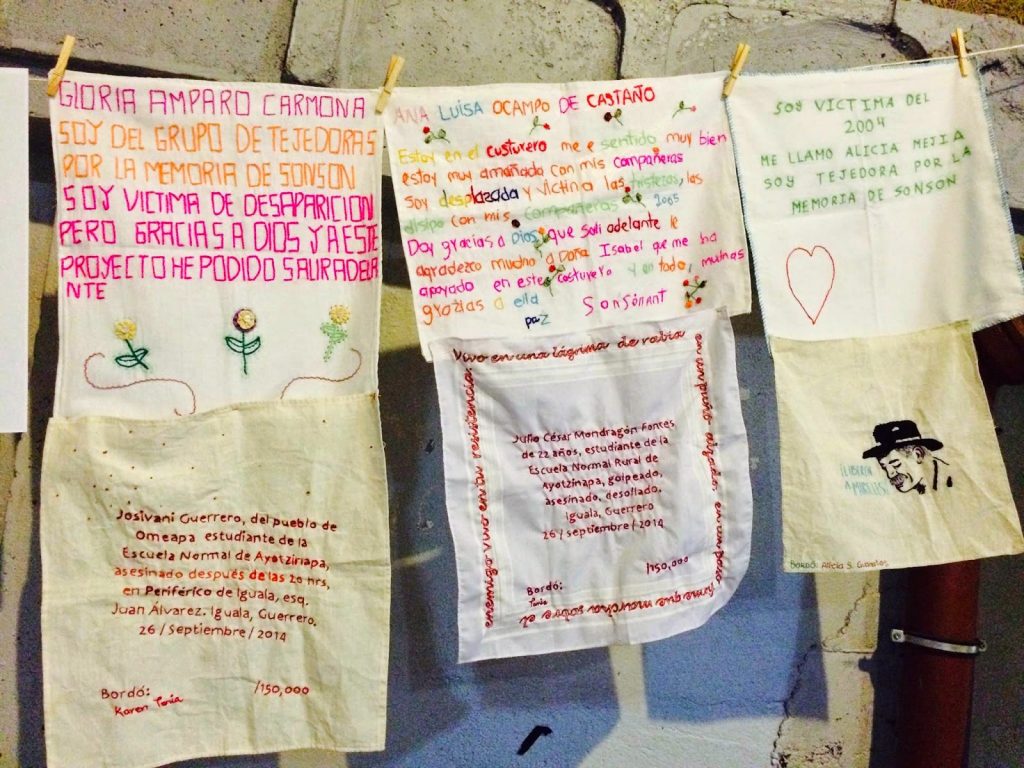 GLORIA AMPARO CARMONA
SOY DEL GRUPO DE TEJEDORAS
POR LA MEMORIA DE SONSON
SOY VICTIMA DE DESAPARICION
PERO GRACIAS A DIOS Y A ESTE
PROYECTO HE PODIDO SALIR ADELA
NTE
Josivani Guerrero, del pueblo de
Omeapa estudiante de la
Escuela Normal de Ayotzinapa,
asesinado después de las 20 hrs,
en Periférico de Iguala, esq.
Juan Álvarez. Iguala, Guerrero.
26/Septiembre/2014
Bordó: /150,000
Karen Tania
ANA LUISA OCAMPO DE CASTAÑO
Estoy en el custurero me e sentido muy bien
estoy muy amañada con mis compañeras
Soy desplazada y victima las tristezas, las
disipo con mis compañeras 2005
Doy gracias a Dios que sali adelante le
agradezco mucho a Doña Isabel que me ha
apoyado en este costurero y en todo, muchas
grazias a ella
paz Sonsónant
Vivo en una lágrima de rabia
en un puño alzado, en un paso
firme que marcha sobre el
vivo en tu resistencia
Julio César Mondragón Fontes
de 22 años, estudiante de la
Escuela Normal Rural de
Ayotzinapa, golpeado,
asesinado, desollado.
Iguala, Guerrero
26/septiembre/2014
/150,000
Bordó:
Tania
SOY VICTIMA DEL
2004
ME LLAMO ALICIA MEJIA
SOY TEJEDORA POR LA
MEMORIA DE SONSON
¡LIBERTA
A MIRELES!
BORDÓ: Alicia S.